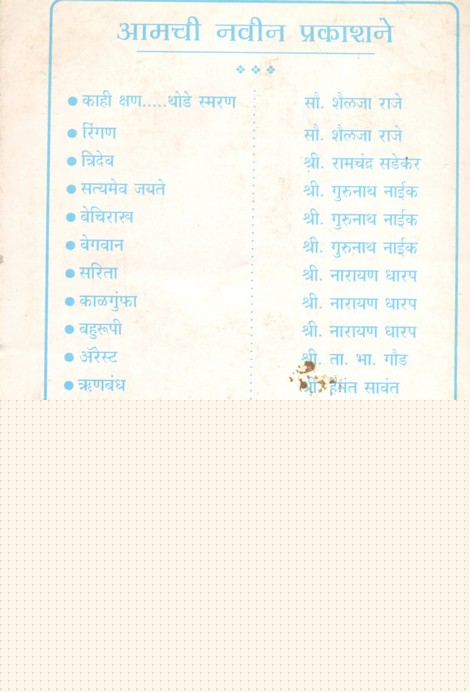 आमची नवीन प्रकाशने
काही क्षण.....थोडे स्मरण सौ. शैलजा राजे
रिंगण सौ. शैलजा राजे
त्रिदेव श्री. रामचंद्र सडेकर
सत्यमेव जयते श्री. गुरुनाथ नाईक
बेचिराख श्री. गुरुनाथ नाईक
वेगवान श्री. गुरुनाथ नाईक
सरिता श्री. नारायण धारप
काळगुंफा श्री. नारायण धारप
बहुरूपी श्री. नारायण धारप
ॲरेस्ट श्री. ता. भा. गौड
ऋणबंध श्री. हेमंत सावंत